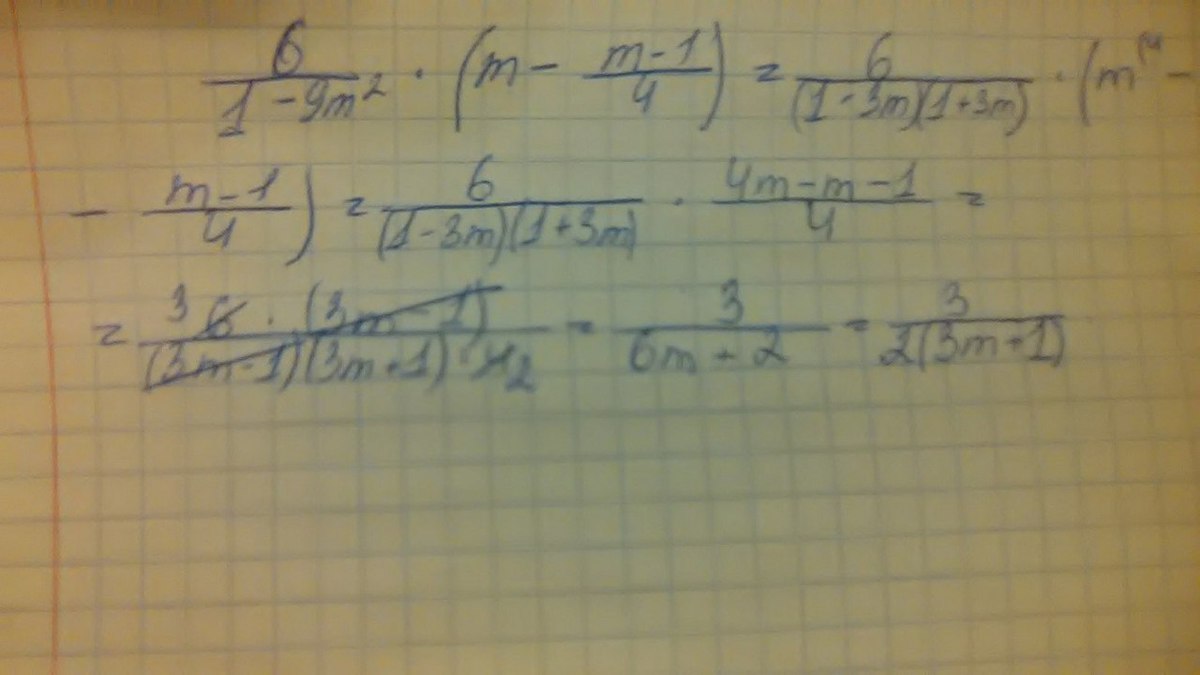 6/(1-9m²) · (m - (m-1)/4) = 6/((1-3m)(1+3m)) · (m⁽⁴ -
- (m-1)/4) = 6/((1-3m)(1+3m)) · (4m-m-1)/4 =
= 3 6 · (3m-1)/((3m-1)(3m+1) · 4 2) = 3/(6m+2) = 3/(2(3m+1))